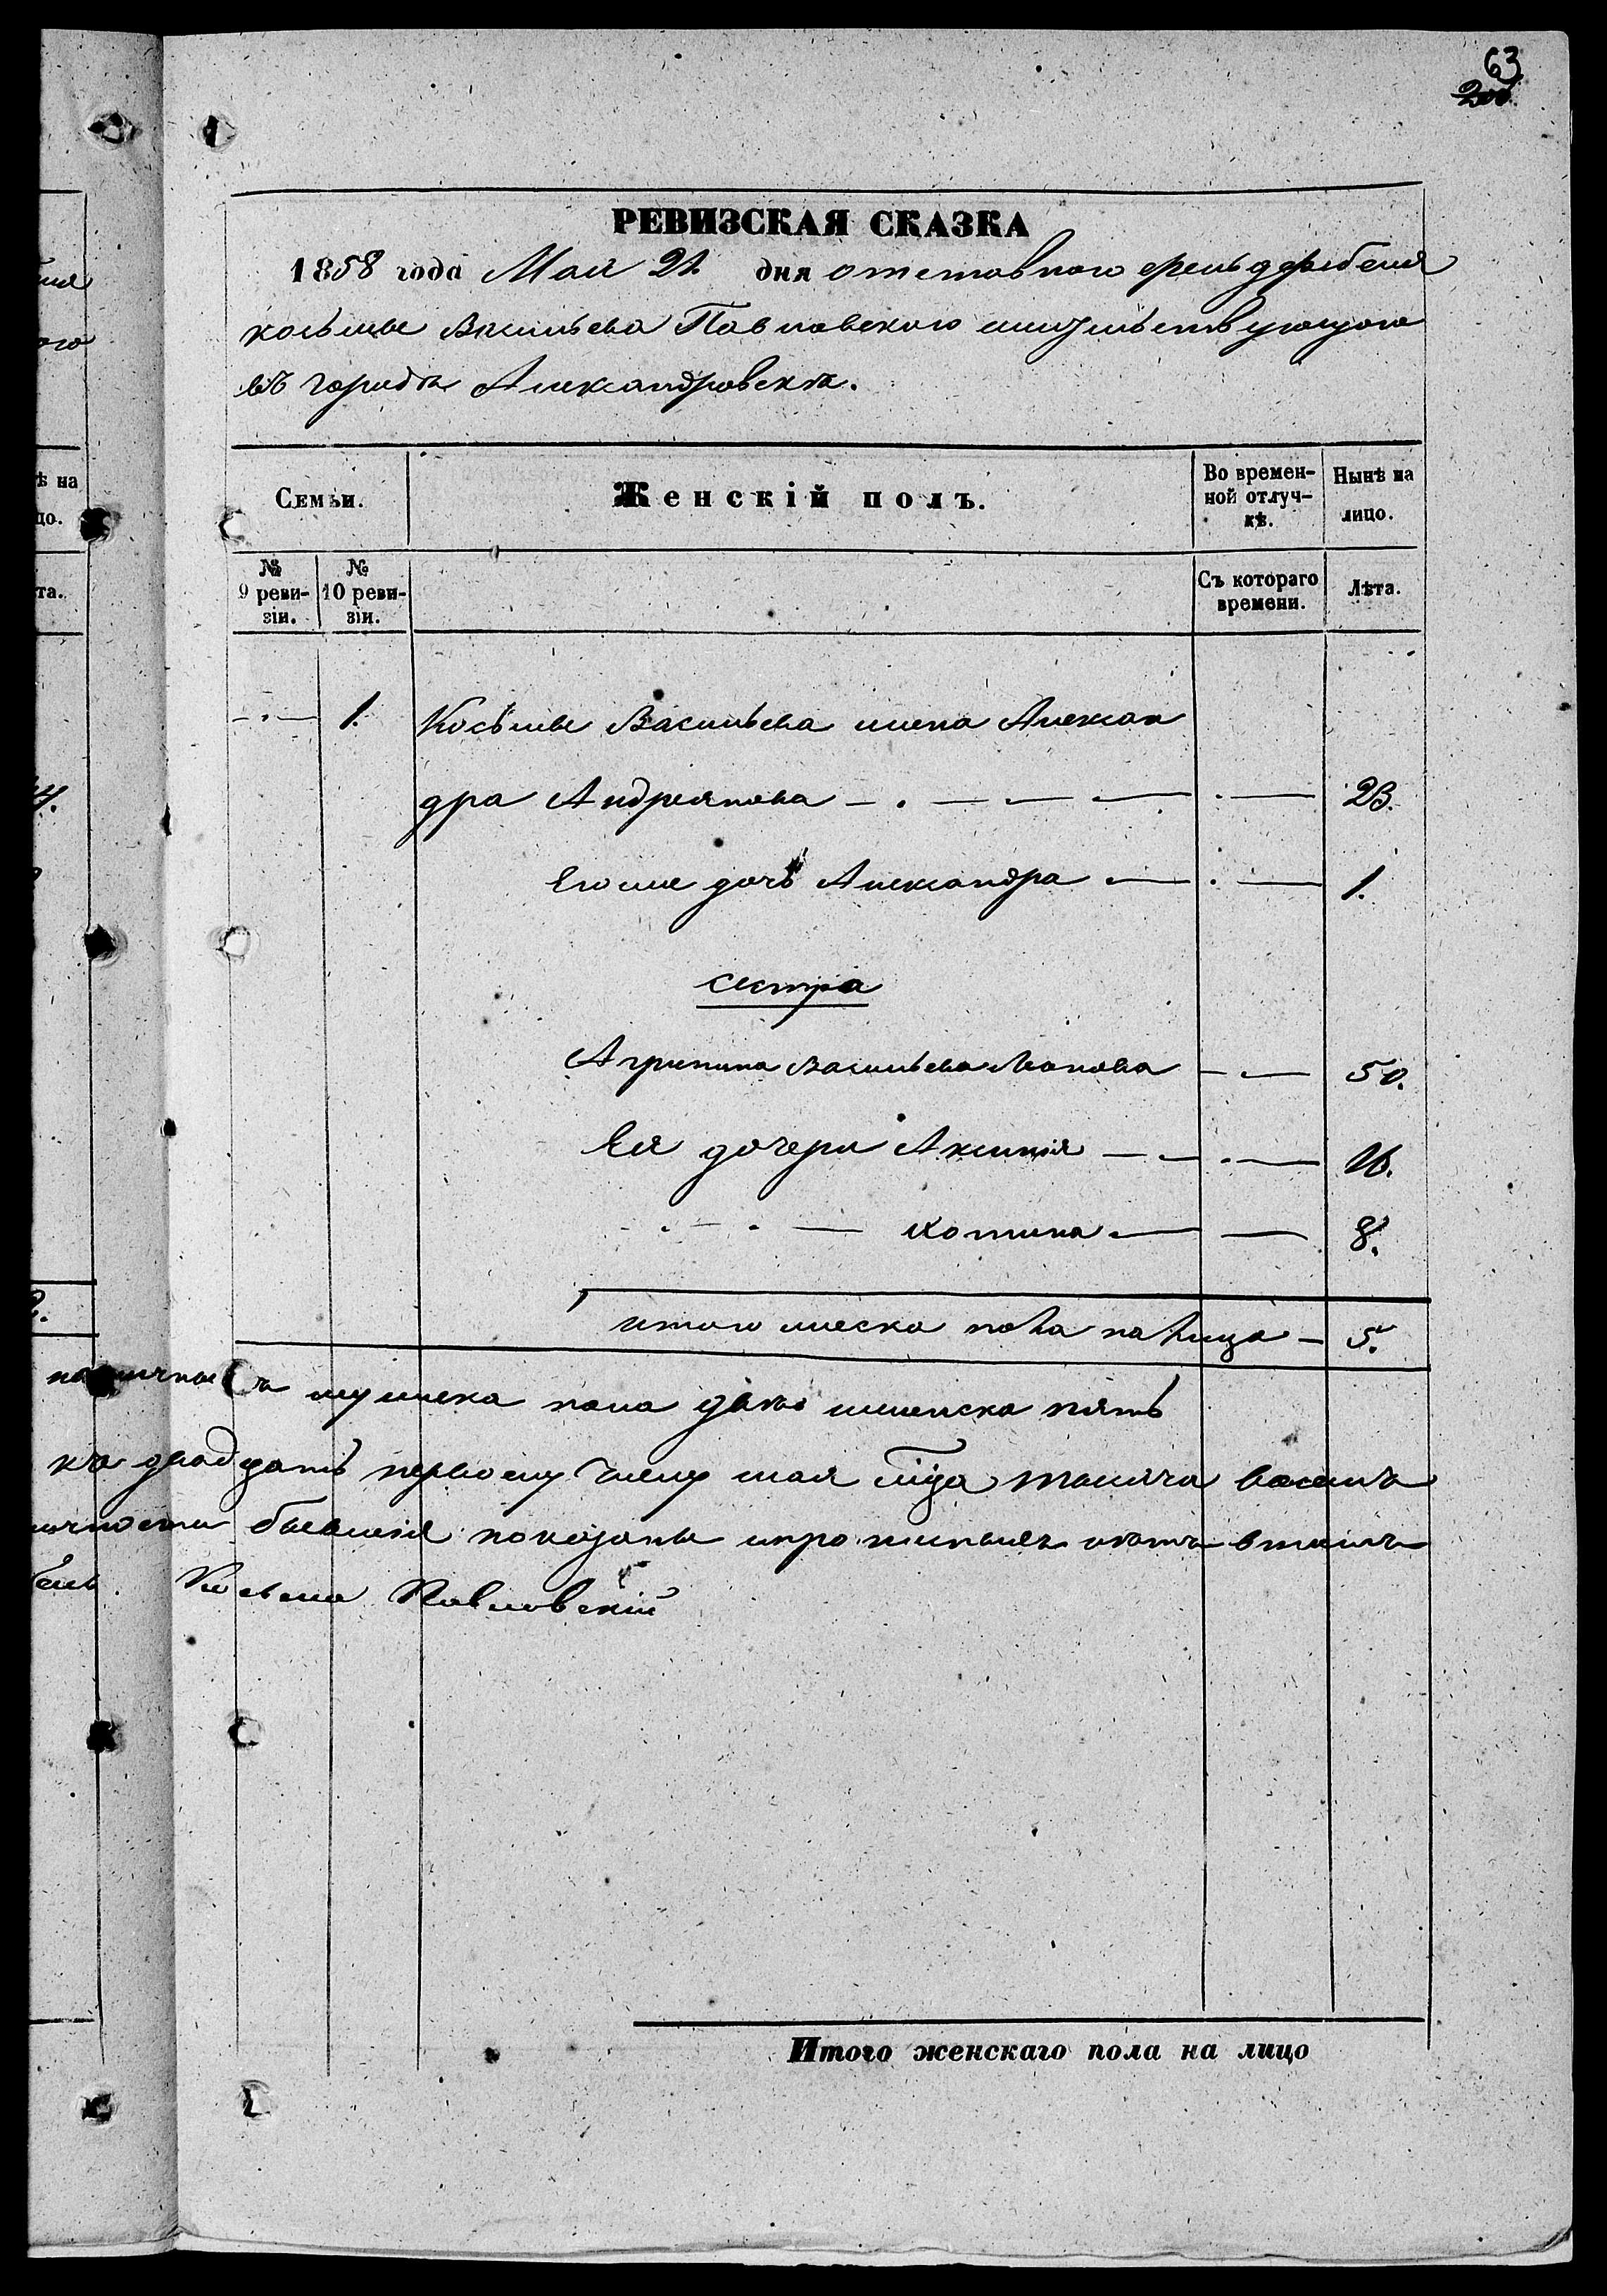 63
200.
РЕВИЗСКАЯ СКАЗКА
1858 года Мая 21. дня отставного фельдфебеля
Козьмы Васильева Павловского жительствующего
въ городѣ Александровскѣ.
Семьи.
Женскій полъ.
Во времен-
ной отлуч-
кѣ.
Нынѣ на
лицо.
№
9 реви-
зіи.
№
10 реви-
зіи.
Съ котораго
времени.
Лѣта.
1. Козьмы Васильева жена Алексан
дра Андреянова 23.
Его же дочь Александра 1.
сестра
Агрипина Васильева 50.
Ея дочери Аксинія 16.
8.
Итого женска пола на лицо 5.
мужеска пола женска пять
къ двадцать первому числу мая мца тысяча
бывшія показаны
Козьма Павловскій
Итого женскаго пола на лицо
ѣ на
цо.
та.